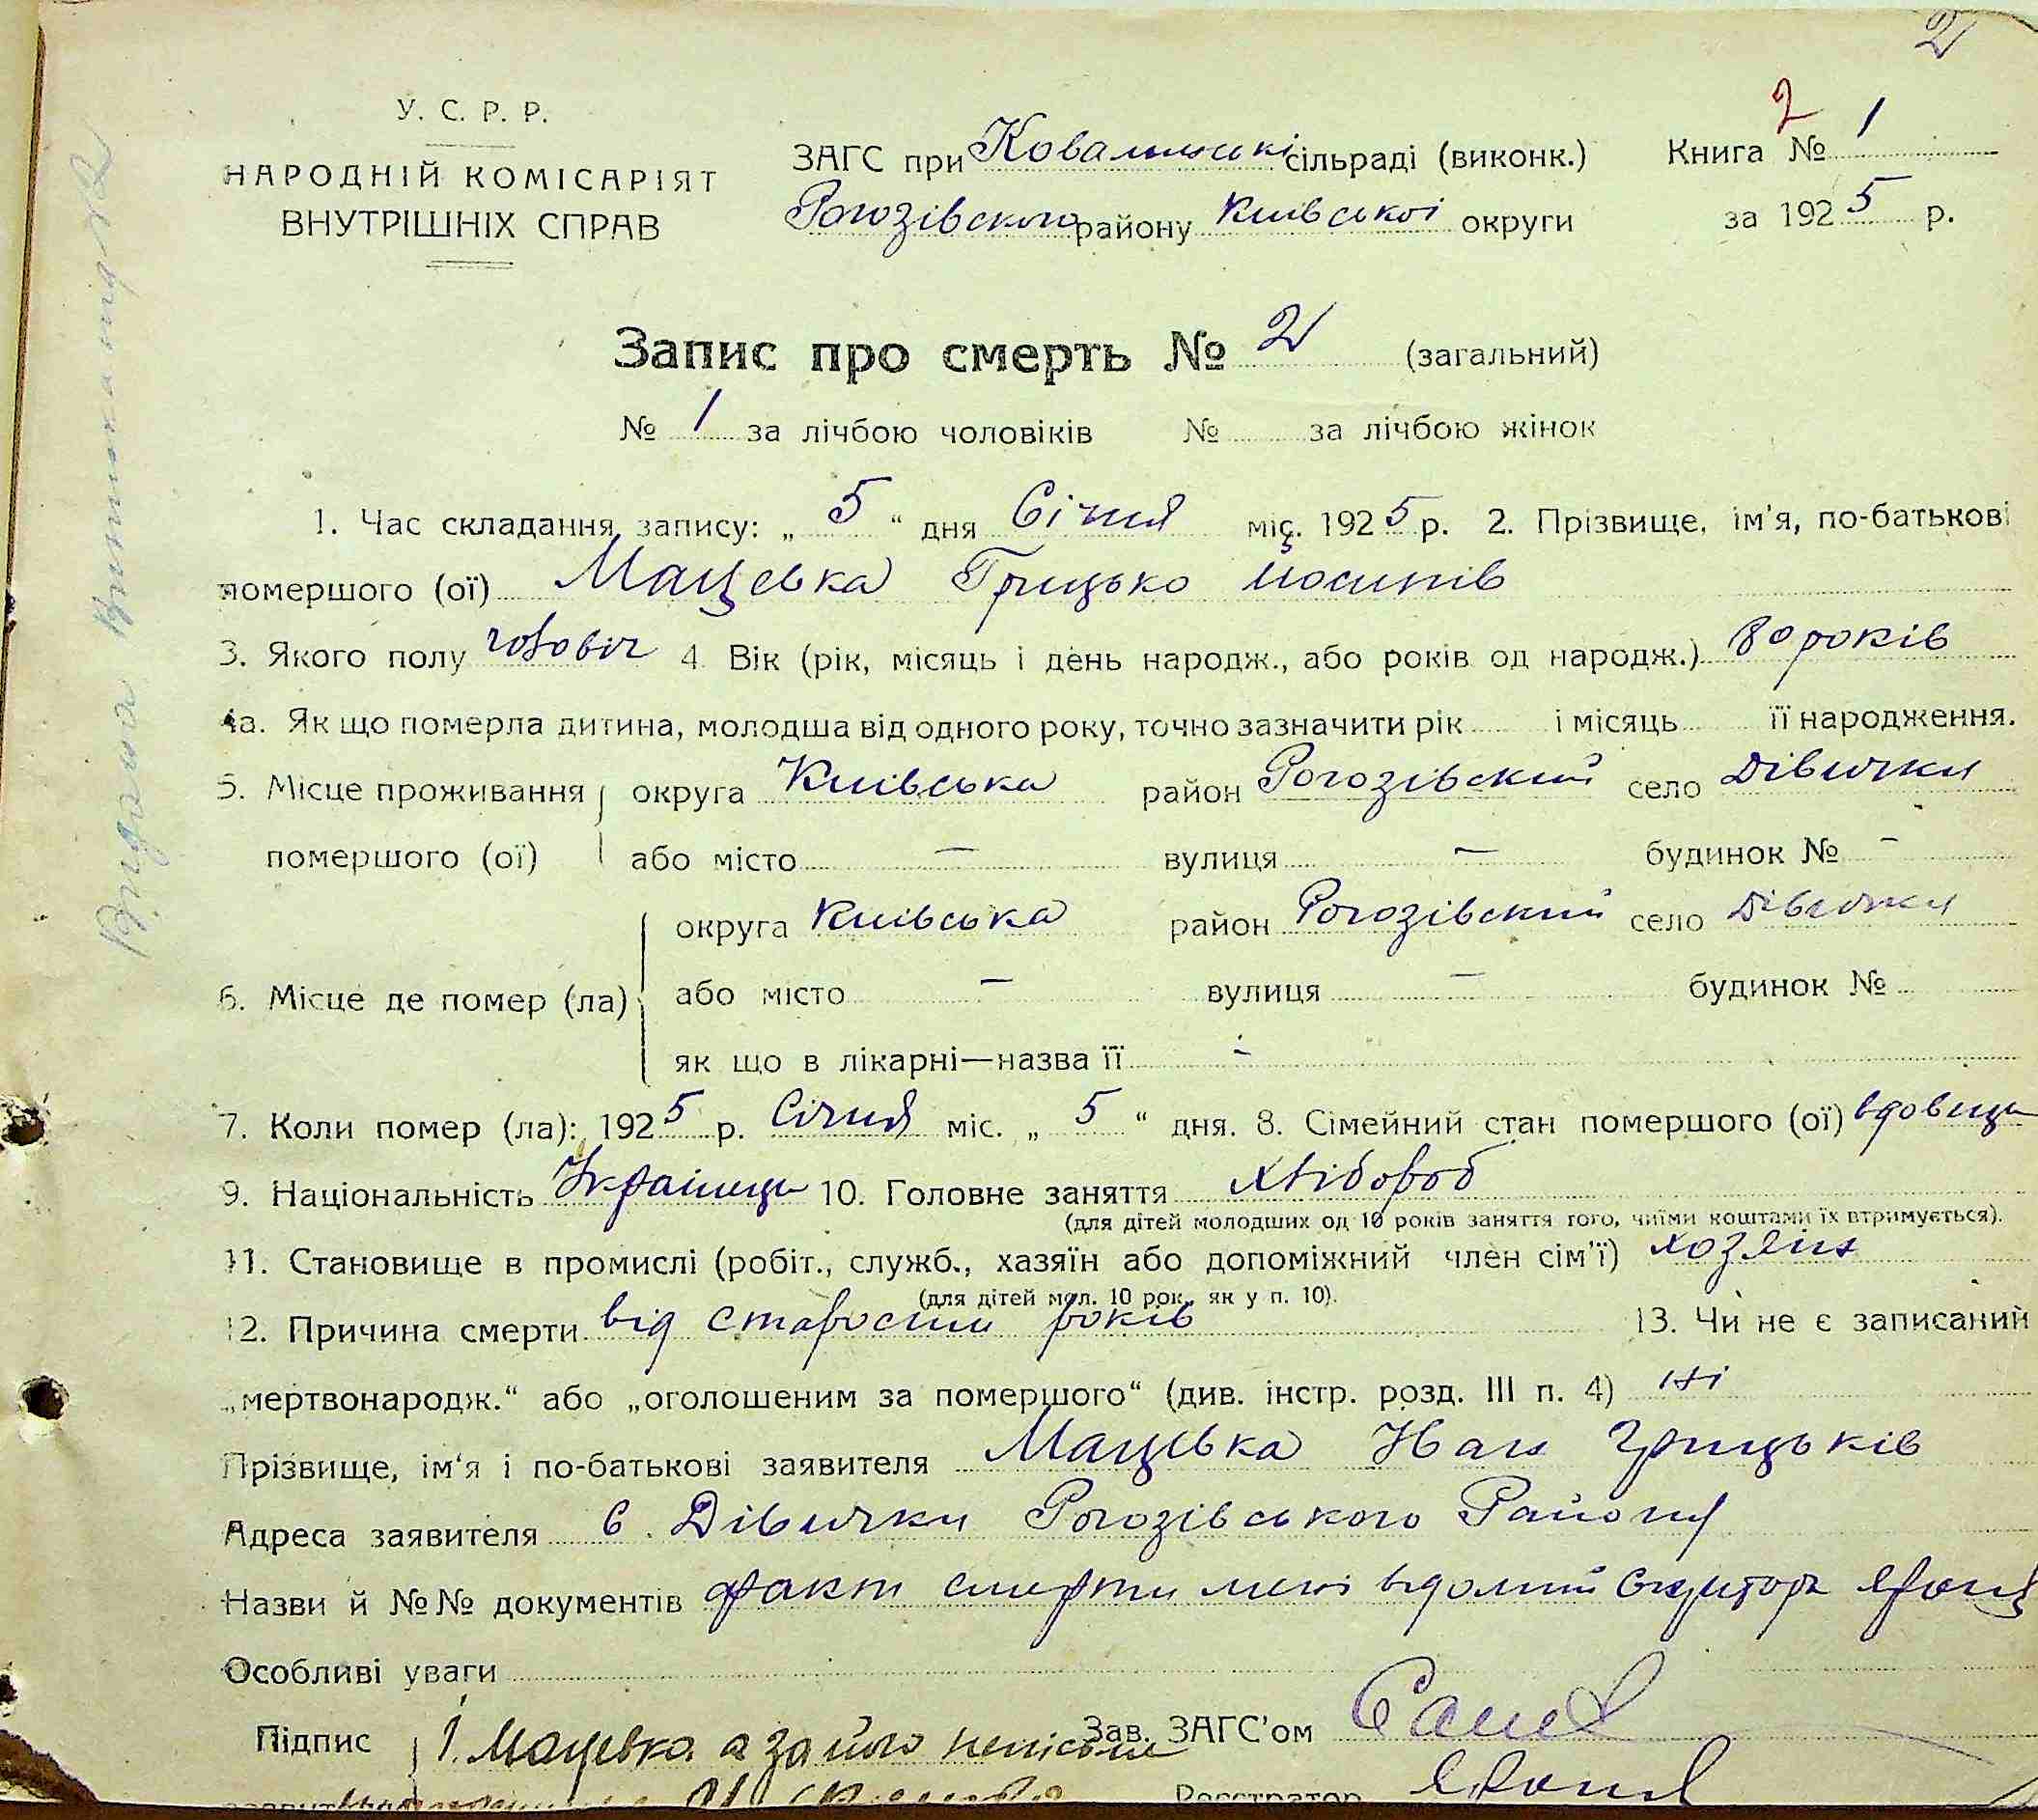 2
У. С. Р. Р.
НАРОДНІЙ КОМІСАРІЯТ
ВНУТРІШНІХ СПРАВ
ЗАГС при Ковалинські сільраді (виконк.)
Рогозівского району Київської округи
2
Книга № 1
за 1925 р.
Запис про смерть № 2 (загальний)
№ 1 за лічбою чоловіків № за лічбою жінок
1. Час складання запису: „5“ дня Січня міс. 1925 р. 2. Прізвище, ім'я, по-батькові
помершого (ої) Мацевка Грицько Йосипів
3. Якого полу чоловіч 4. Вік (рік, місяць і день народж., або років од народж.) 80 років
4а. Як що померла дитина, молодша від одного року, точно зазначити рік і місяць її народження.
5. Місце проживання помершого (ої) округа Київська район Рогозівский село Дівички
або місто — вулиця — будинок № -
6. Місце де помер (ла) округа Київська район Рогозівский село Дівички
або місто — вулиця — будинок №
як що в лікарні—назва її -
7. Коли помер (ла): 1925 р. Січня міс. „5“ дня. 8. Сімейний стан помершого (ої) вдовець
9. Національність Українець 10. Головне заняття хлібороб
(для дітей молодших од 10 років заняття того, чиїми коштами їх втримується).
11. Становище в промислі (робіт., служб., хазяїн або допоміжний член сім'ї) хозяин
(для дітей мол. 10 рок., як у п. 10).
12. Причина смерти від старости років 13. Чи не є записаний
„мертвонародж.“ або „оголошеним за помершого“ (див. інстр. розд. III п. 4) ні
Прізвище, ім'я і по-батькові заявителя Мацевка Иван Грицьків
Адреса заявителя с. Дівички Рогозівського Району
Назви й №№ документів факт смерти мені відомий
Особливі уваги
Підпис І. Мацевка а за його неписьм
Зав. ЗАГС'ом
Реєстратор
Видана Виписка под №2